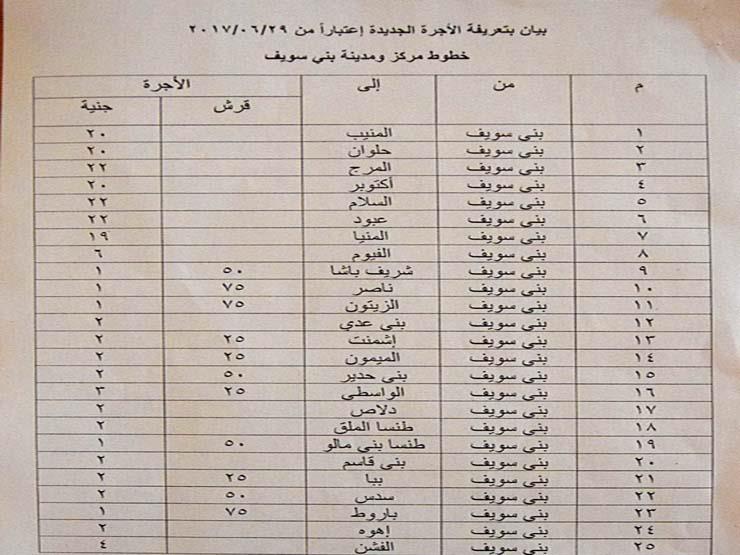 بيان بتعريفة الأجرة الجديدة إعتباراً من ٢٠١٧/٠٦/٢٩
خطوط مركز ومدينة بني سويف
م من إلى الأجرة
قرش جنية
١ بني سويف المنيب ٢٠
٢ بني سويف حلوان ٢٠
٣ بني سويف المرج ٢٢
٤ بني سويف أكتوبر ٢٠
٥ بني سويف السلام ٢٢
٦ بني سويف عبود ٢٢
٧ بني سويف المنيا ١٩
٨ بني سويف الفيوم ٦
٩ بني سويف شريف باشا ٥٠ ١
١٠ بني سويف ناصر ٧٥ ١
١١ بني سويف الزيتون ٧٥ ١
١٢ بني سويف بني عدي ٢
١٣ بني سويف إشمنت ٢٥ ٢
١٤ بني سويف الميمون ٢٥ ٢
١٥ بني سويف بني حدير ٥٠ ٢
١٦ بني سويف الواسطى ٢٥ ٣
١٧ بني سويف دلاص ٢
١٨ بني سويف طنسا الملق ٢
١٩ بني سويف طنسا بني مالو ٥٠ ١
٢٠ بني سويف بني قاسم ٢
٢١ بني سويف ببا ٢٥ ٢
٢٢ بني سويف سدس ٥٠ ٢
٢٣ بني سويف باروط ٧٥ ١
٢٤ بني سويف إهوه ٢
٢٥ بني سويف الفشن ٤